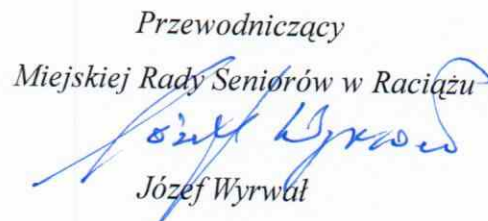 Przewodniczący
Miejskiej Rady Seniorów w Raciążu
Józef Wyrwał
Józef Wyrwał